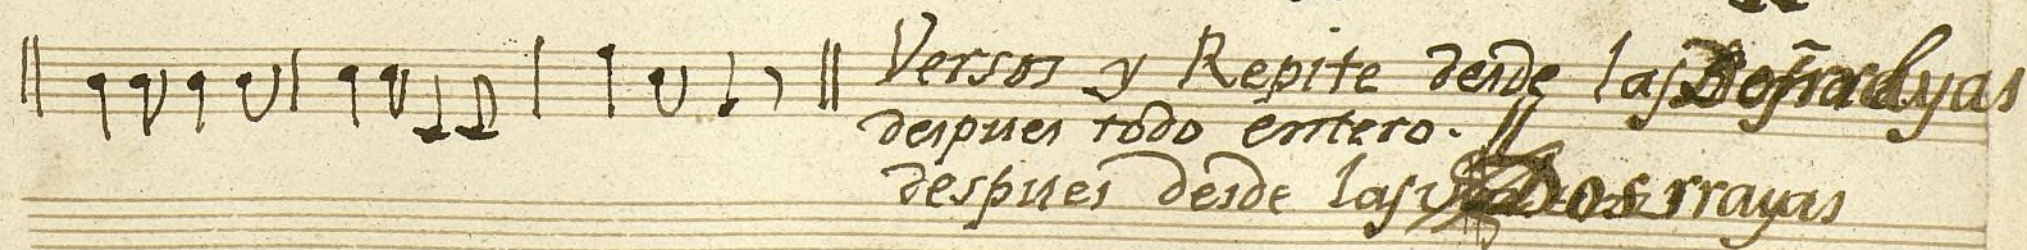 Versos y Repite desde las rayas
despues todo entero.
despues desde las Dos rrayas